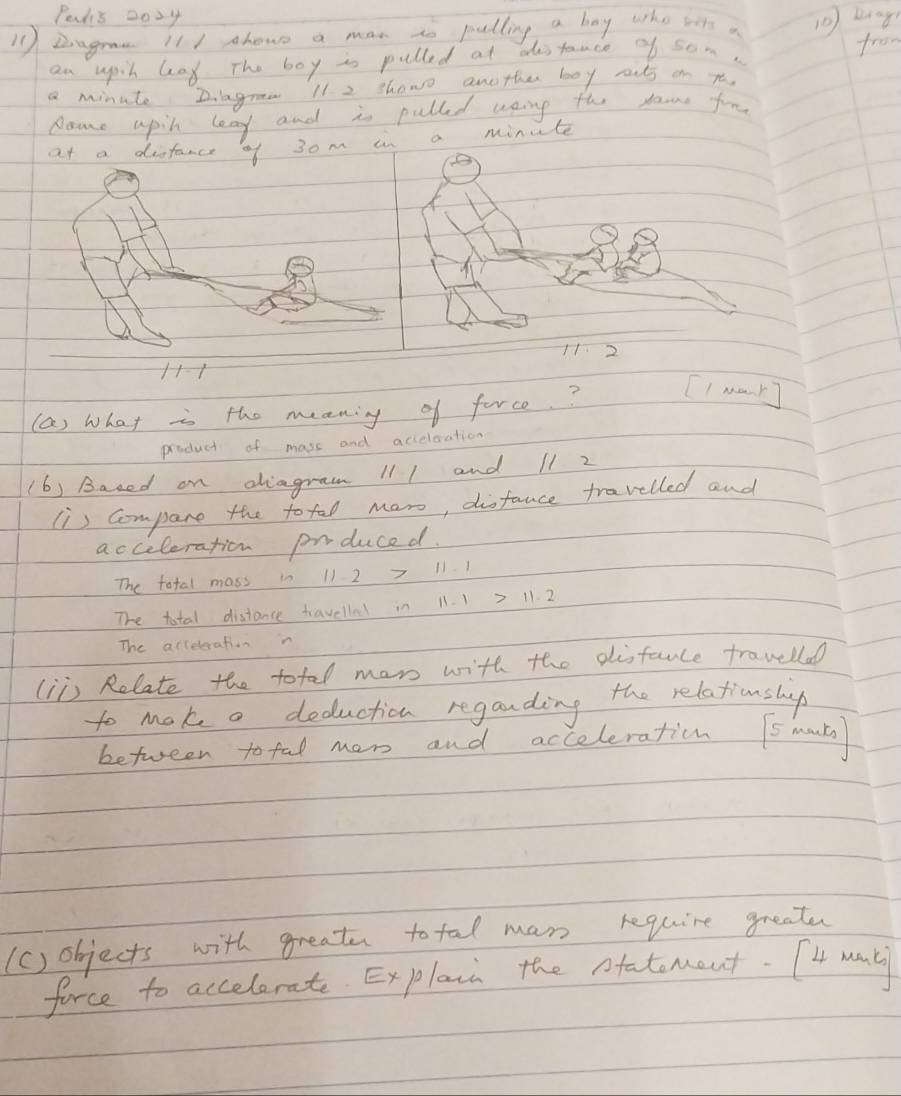 Perlis 2024
11) Diagram 11.1 shows a man is pulling a boy who sits
an upih leaf The boy is pulled at distance of 50m
a minute Diagram 11.2 shows another boy sits on the
same upih leaf and is pulled using the same
at a distance of 30m in a minute
11.1
11.2
(a) What is the meaning of force.? [1 mark]
product of mass and acceleration
(b) Based on diagram 11.1 and 11.2
(i) Compare the total mass, distance travelled and
acceleration produced.
The total mass in 11.2 > 11.1
The total distance travelled in 11.1 > 11.2
The acceleration in
(ii) Relate the total mass with the distance travelled
to make a deduction regarding the relationship
between total mass and acceleration [5 marks]
(c) Objects with greater total mass require greater
force to accelerate. Explain the statement - [4 marks]
10)
from